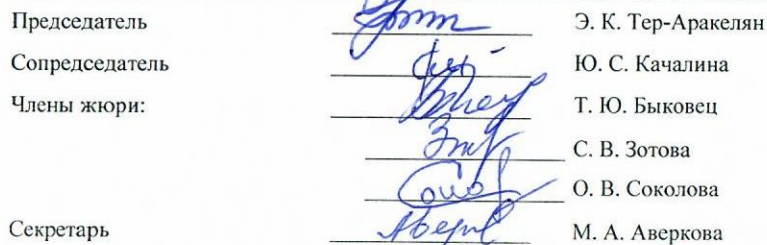 Председатель Э. К. Тер-Аракелян
Сопредседатель Ю. С. Качалина
Члены жюри: Т. Ю. Быковец
С. В. Зотова
О. В. Соколова
Секретарь М. А. Аверкова